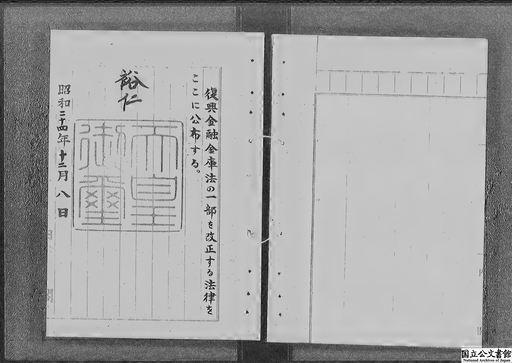 復興金融金庫法の一部を改正する法律を
ここに公布する。
裕仁
天皇
御璽
昭和二十四年十二月八日
国立公文書館
National Archives of Japan